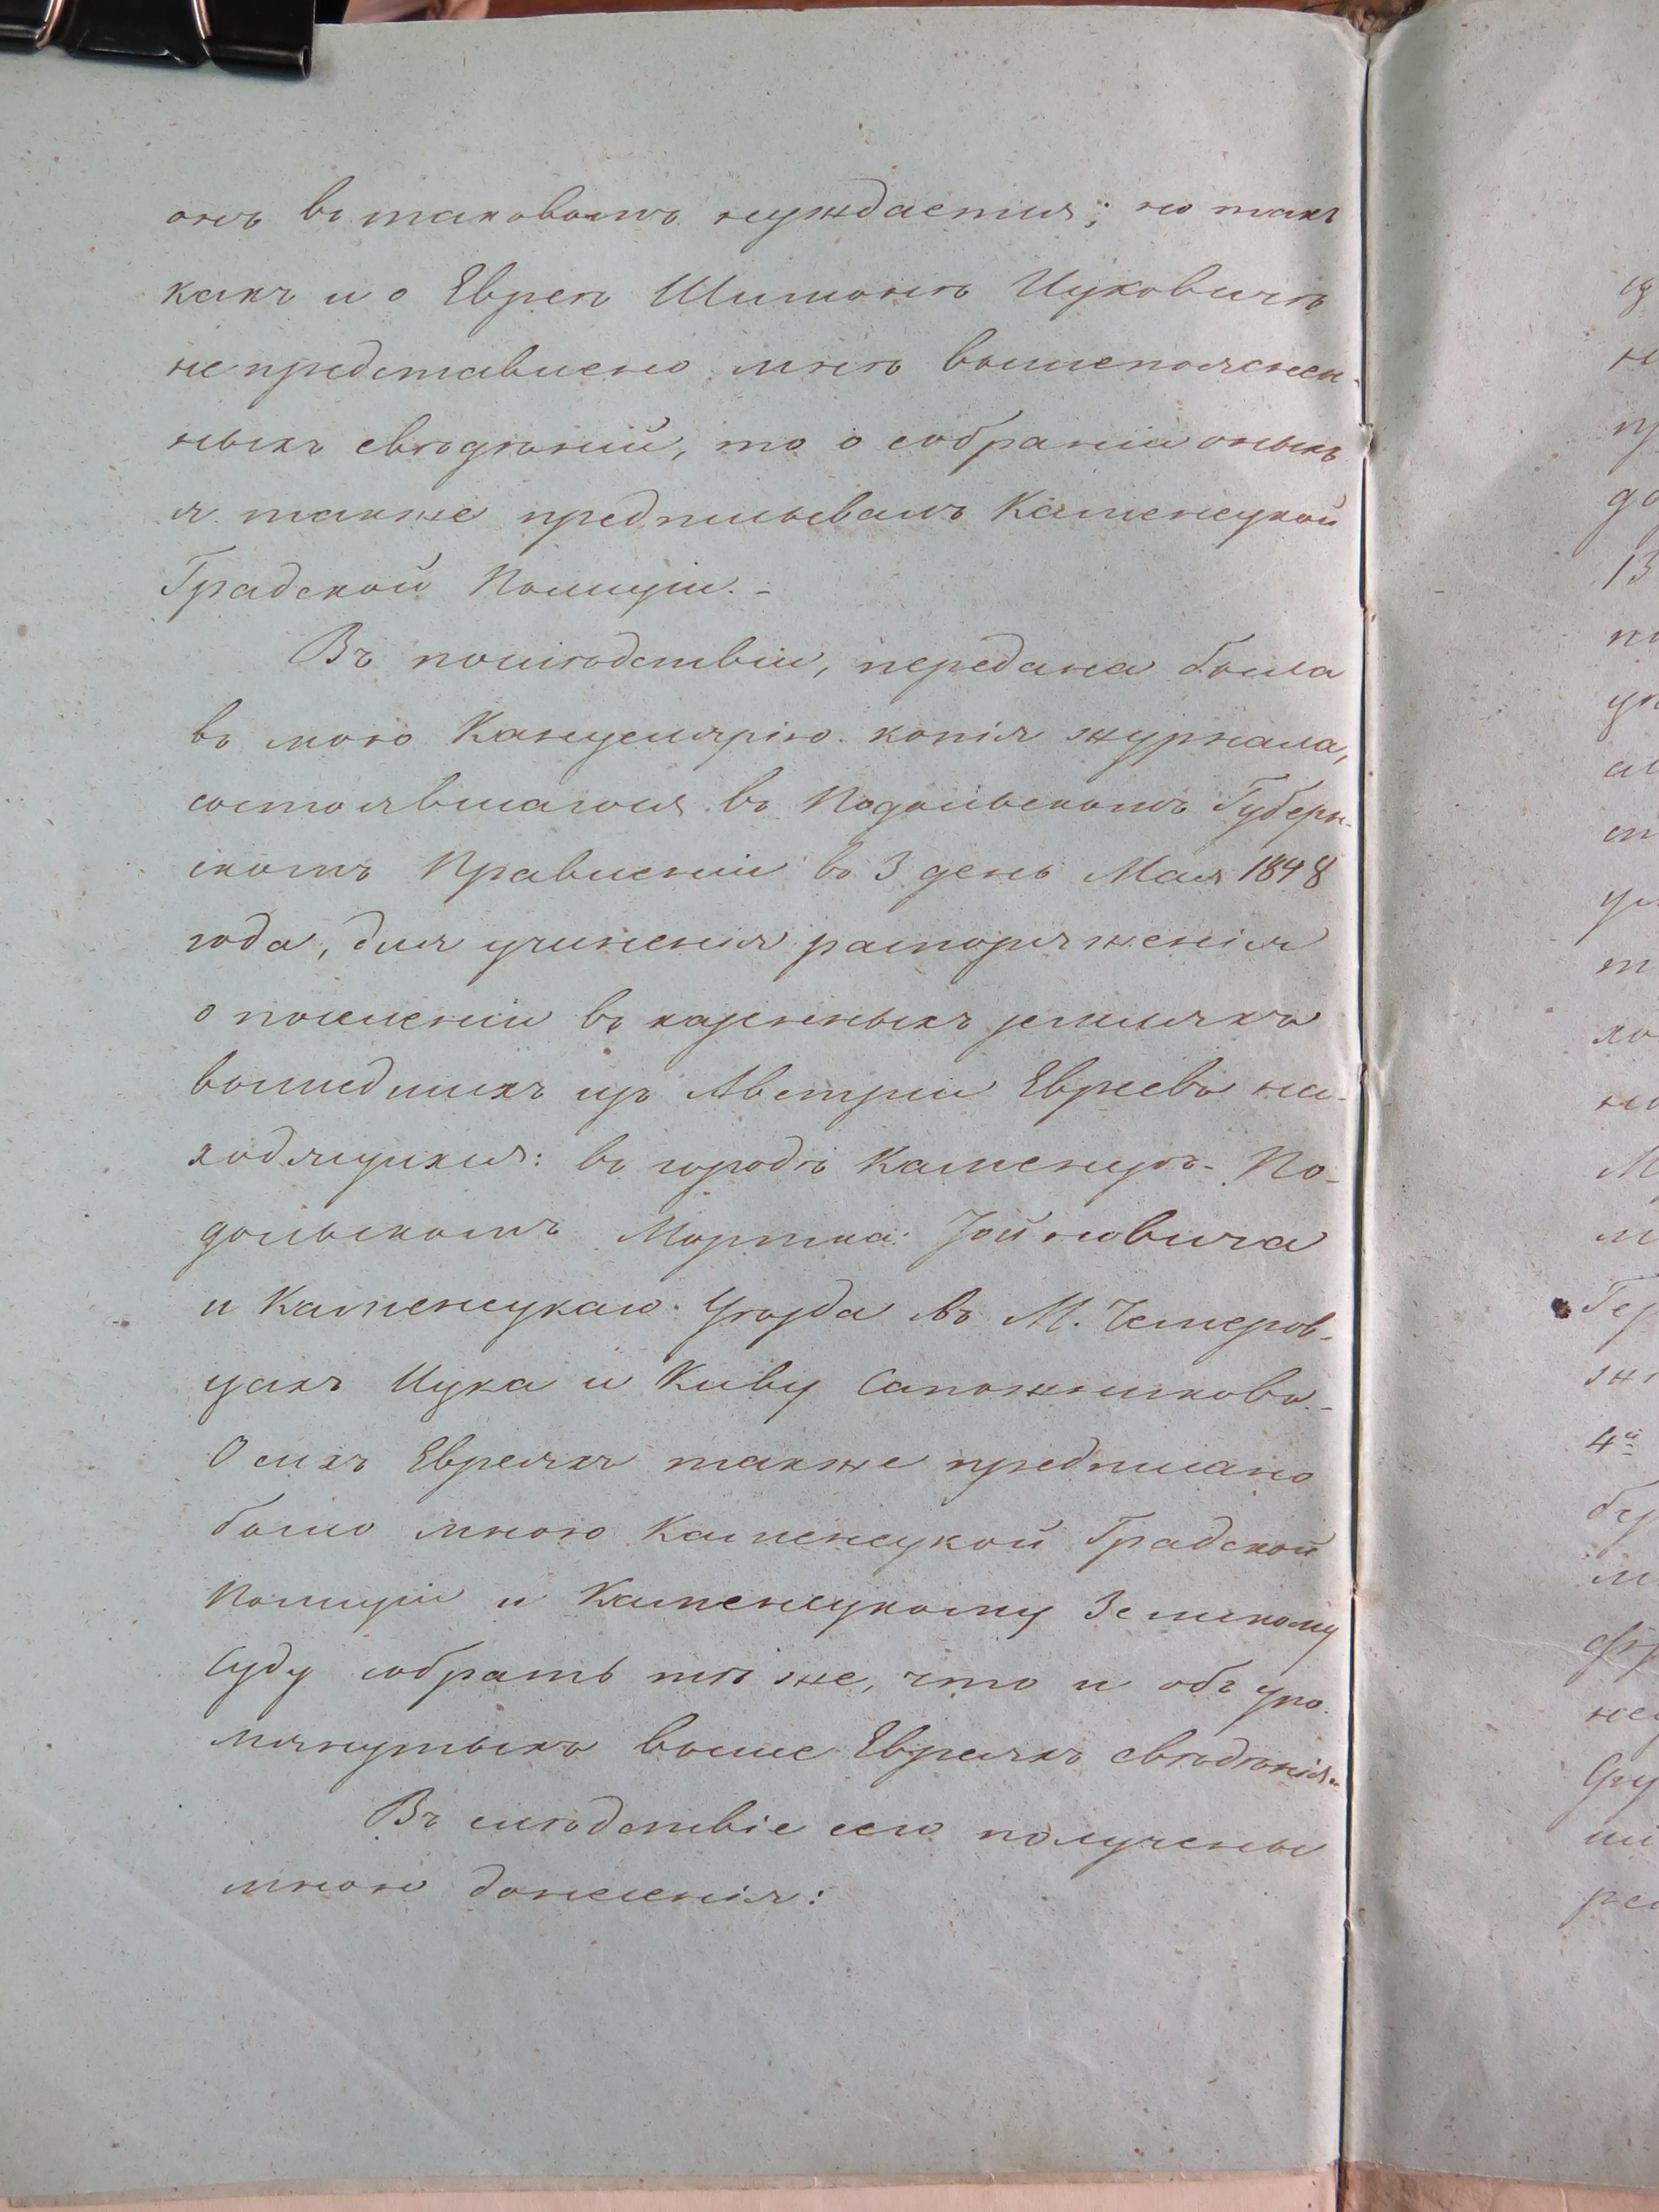 онъ въ таковомъ нуждается; но такъ
какъ и о Евреѣ Шимонѣ Ицковичѣ
не представлено мнѣ вышепояснен-
ныхъ свѣдѣній, то о собраніи оныхъ
я также предписывалъ Каменецкой
Градской Полиціи.-
Въ послѣдствіи, передана была
въ мою Канцелярію копія журнала,
состоявшагося въ Подольскомъ Губерн-
скомъ Правленіи въ 3 день Мая 1848
года, для учиненія распоряженія
о поселеніи въ казенныхъ земляхъ
вышедшихъ изъ Австріи Евреевъ на-
ходящихся: въ городѣ Каменцѣ-По-
дольскомъ Мортка Іойновича
и Каменецкаго Уѣзда въ М. Чемеров-
цахъ Ицка и Киву Сапожниковъ.-
О сихъ Евреяхъ также предписано
было мною Каменецкой Градской
Полиціи и Каменецкому Земскому
Суду собрать тѣ же, что и объ упо-
мянутыхъ выше Евреяхъ свѣдѣнія.-
Въ слѣдствіе сего получены
мною донесенія: